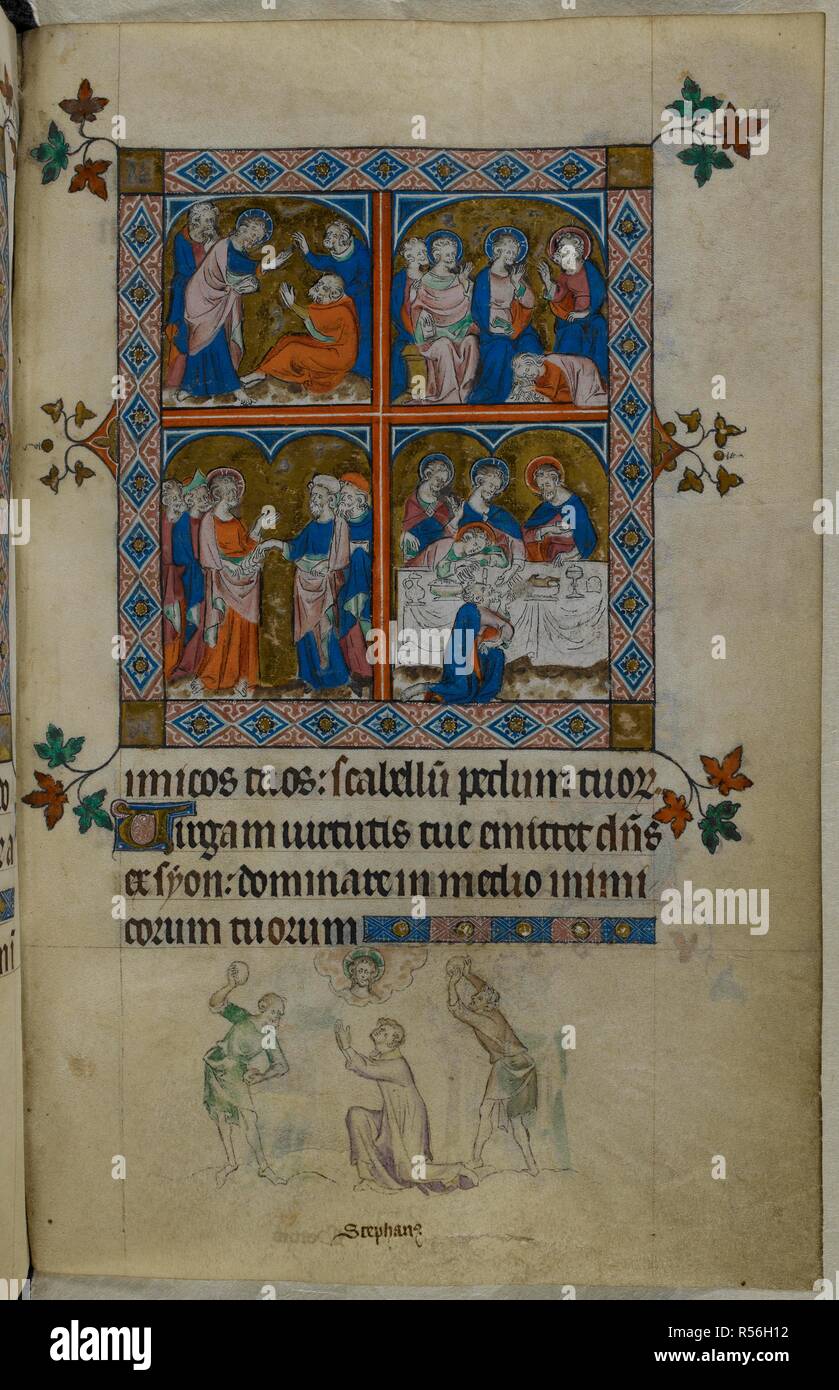 imicos tuos: scabellū pedum tuoꝝ.
Virgam uirtutis tue emittet dn̄s
ex syon: dominare in medio inimi
corum tuorum
Stephanꝰ
alamy
Image ID: R56H12
www.alamy.com